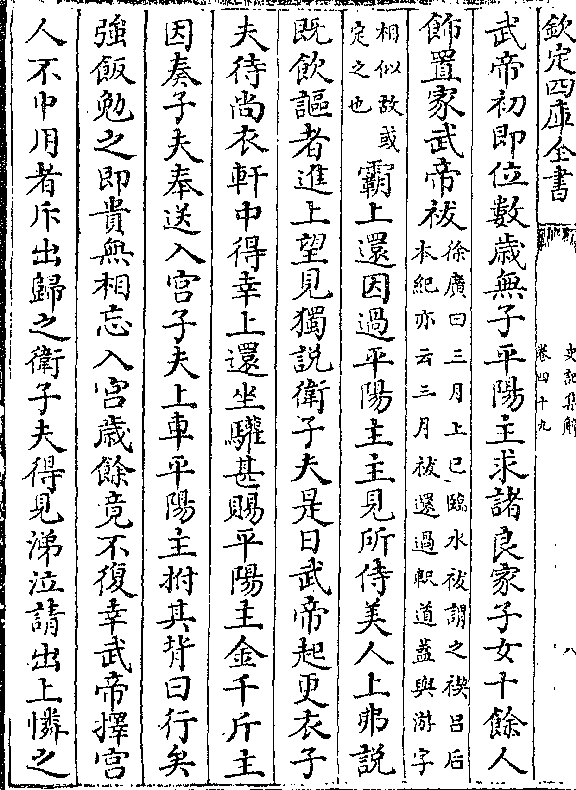 欽定四庫全書
史記集解
卷四十九
八
武帝初即位數歲無子平陽主求諸良家子女十餘人
飾置家武帝祓
徐廣曰三月上巳臨水祓謂之禊吕后
本紀亦云三月祓還過軹道蓋與游字
相似故或
定之也
霸上還因過平陽主主見所侍美人上弗説
既飲謳者進上望見獨説衛子夫是日武帝起更衣子
夫侍尚衣軒中得幸上還坐驩甚賜平陽主金千斤主
因奏子夫奉送入宫子夫上車平陽主拊其背曰行矣
強飯勉之即貴無相忘入宫歲餘竟不復幸武帝擇宫
人不中用者斥出歸之衛子夫得見涕泣請出上憐之